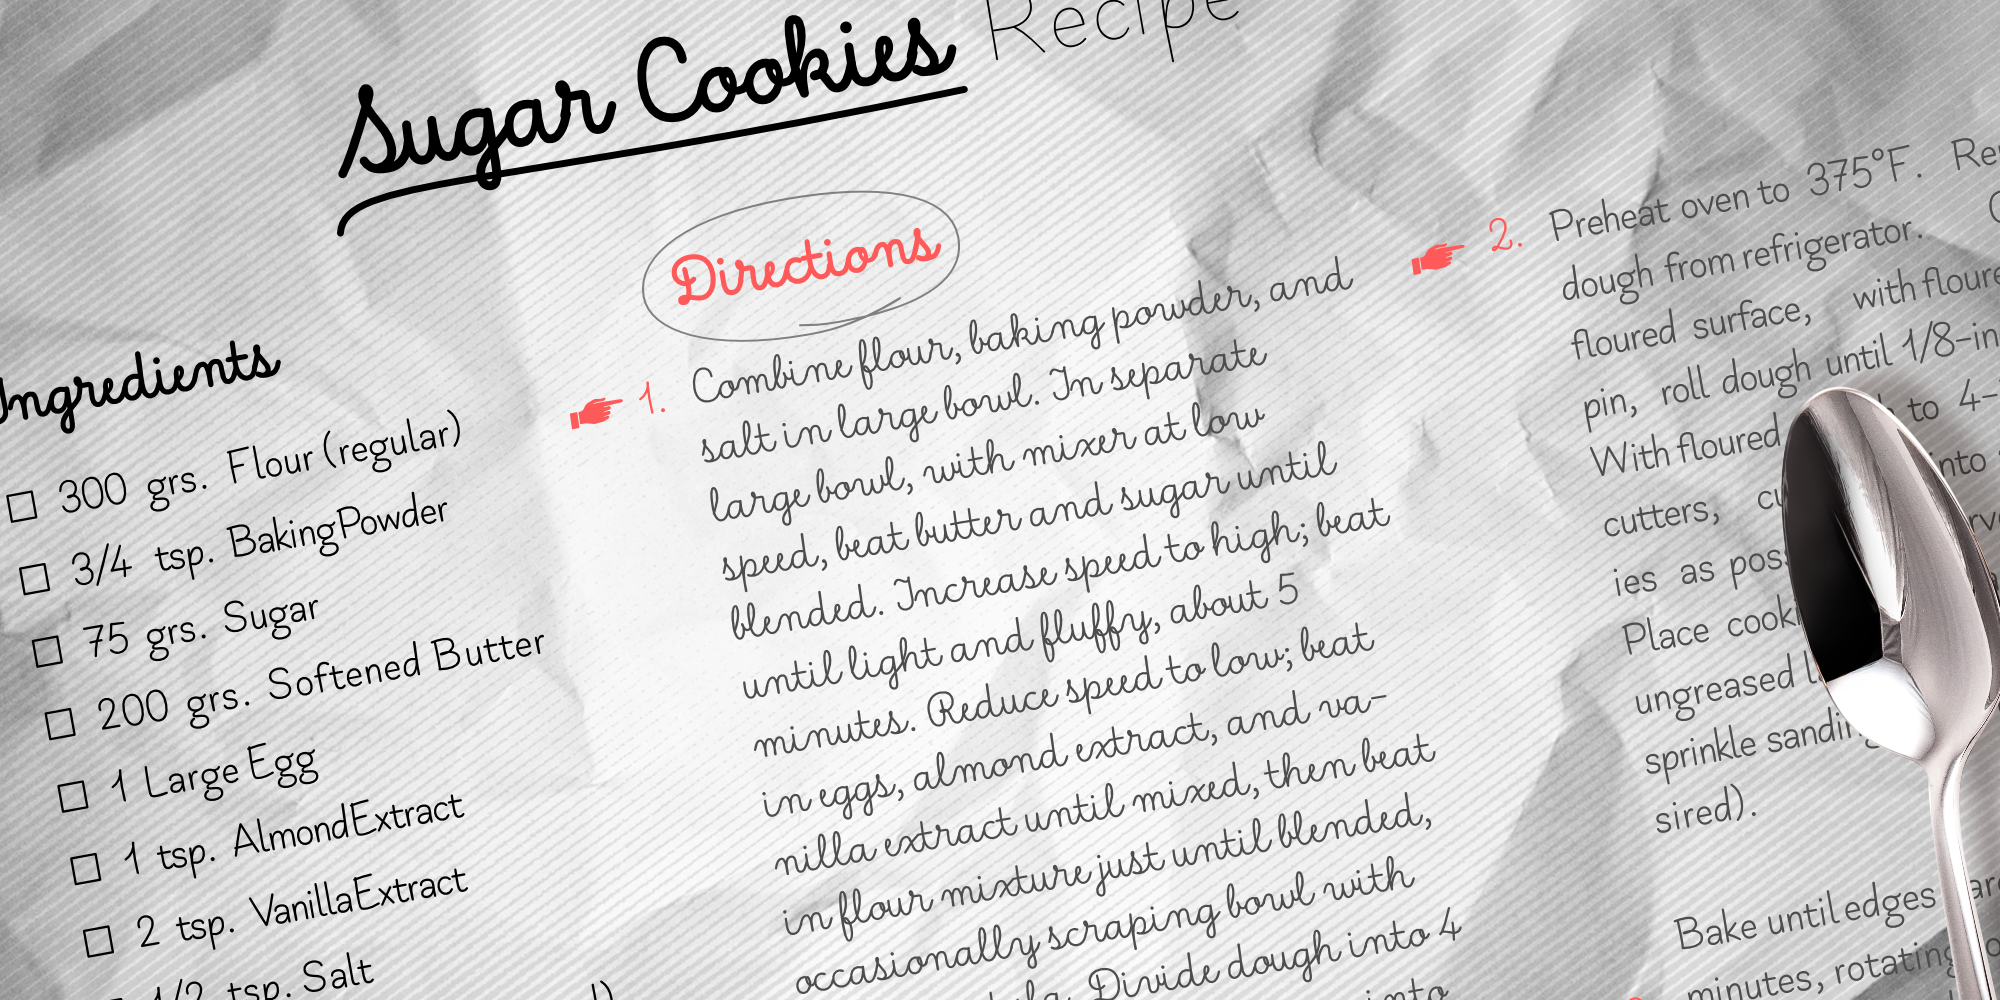 Sugar Cookies Recipe
Ingredients
300 grs. Flour (regular)
3/4 tsp. Baking Powder
75 grs. Sugar
200 grs. Softened Butter
1 Large Egg
1 tsp. Almond Extract
2 tsp. Vanilla Extract
1/2 tsp. Salt
Directions
1. Combine flour, baking powder, and
salt in large bowl. In separate
large bowl, with mixer at low
speed, beat butter and sugar until
blended. Increase speed to high; beat
until light and fluffy, about 5
minutes. Reduce speed to low; beat
in eggs, almond extract, and va-
nilla extract until mixed, then beat
in flour mixture just until blended,
occasionally scraping bowl with
Divide dough into 4
into
2. Preheat oven to 375°F.
dough from refrigerator.
floured surface, with
pin, roll dough until
With floured to
cutters,
ies as
Place
ungreased
sprinkle
sired).
Bake until edges
minutes, rotating